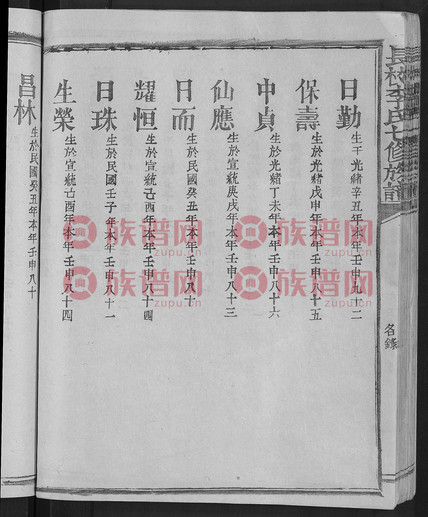 長林李氏七修族譜
名錄
日勤 生于光緒辛丑年本年壬申九十二
保壽 生於光緒戊申年本年壬申八十五
中貞 生於光緒丁未年本年壬申八十六
仙應 生於宣統庚戌年本年壬申八十三
日而 生於民國癸丑年本年壬申八十
耀恒 生於宣統己酉年本年壬申八十四
日珠 生於民國壬子年本年壬申八十一
生榮 生於宣統己酉年本年壬申八十四
昌林 生於民國癸丑年本年壬申八十
族谱网 zupu.cn
族谱网 zupu.cn
族谱网 zupu.cn
族谱网 zupu.cn